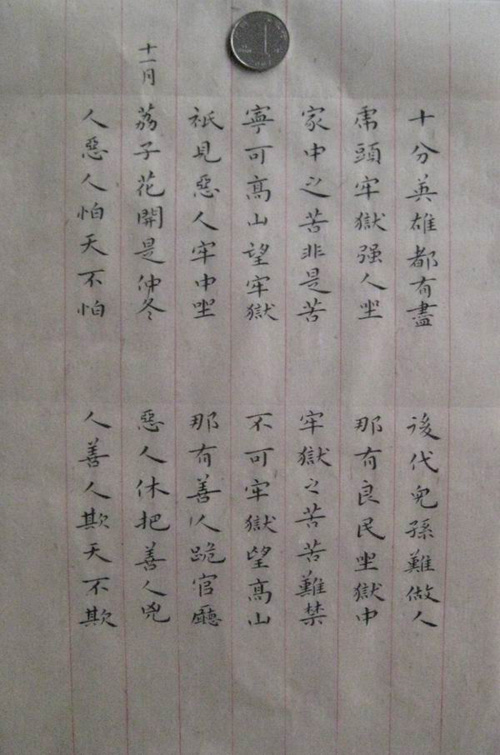 十分英雄都有盡 後代兒孫難做人
虎頭牢獄强人坐 那有良民坐獄中
家中之苦非是苦 牢獄之苦苦難禁
寧可髙山望牢獄 不可牢獄望髙山
祇見惡人牢中坐 那有善人跪官廳
十一月 荔子花開是仲冬 惡人休把善人兇
人惡人怕天不怕 人善人欺天不欺